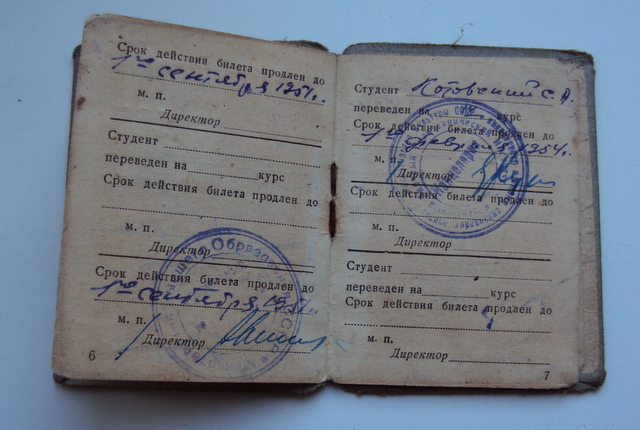 Срок действия билета продлен до
1го сентября 1951 г.
м. п.
Директор
Студент
переведен на курс
Срок действия билета продлен до
м. п.
Директор
Срок действия билета продлен до
1го сентября 1951 г.
м. п.
Директор
6
Студент Котовский С. А.
переведен на курс
Срок действия билета продлен до
1го февраля 1954 г.
м. п.
Директор
Срок действия билета продлен до
м. п.
Директор
Студент
переведен на курс
Срок действия билета продлен до
м. п.
Директор
7